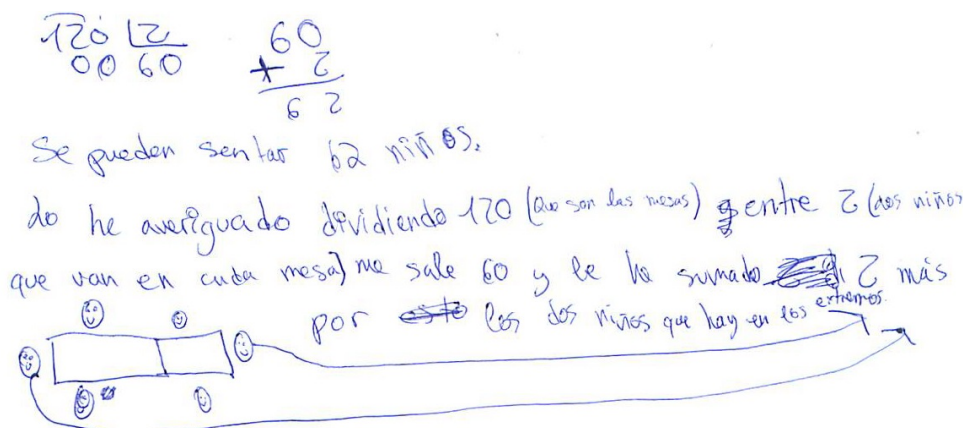 120 | 2
00 60
60
+ 2
62
Se pueden sentar 62 niños.
Lo he averiguado dividiendo 120 (que son las mesas) entre 2 (dos niños
que van en cada mesa) me sale 60 y le he sumado 2 más
por los dos niños que hay en los extremos.